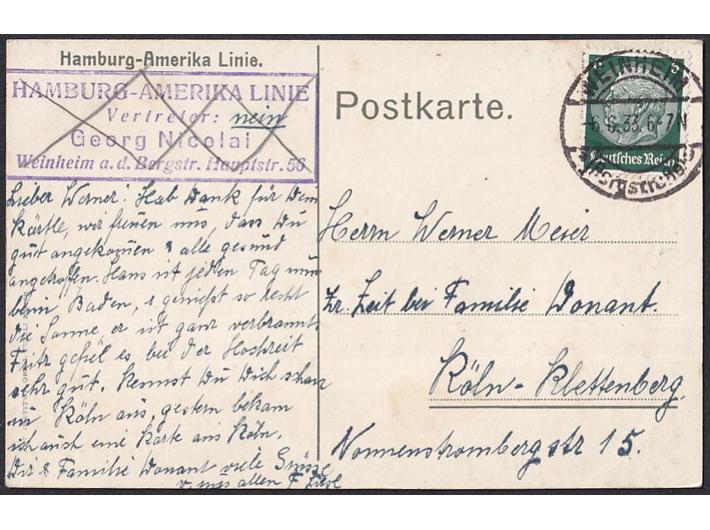 Hamburg-Amerika Linie.
HAMBURG-AMERIKA LINIE
Vertreter: nein
Georg Nicolai
Weinheim a. d. Bergstr. Hauptstr. 56
Postkarte.
WEINHEIM
6.6.33. 6-7 N
(Bergstrasse)
6
Deutsches Reich
Lieber Werner! Hab Dank für Dein
Kärtle, wir freuen uns, dass Du
gut angekom̅en & alle gesund
angetroffen. Hans ist jeden Tag nun
beim Baden, & genießt so recht
die Sonne, er ist ganz verbrannt.
Fritz gefiel es bei der Hochzeit
sehr gut. Kennst Du Dich schon
in Köln aus, gestern bekam
ich auch eine Karte aus Köln.
Dir & Familie Donant viele Grüsse
v. uns allen
Herrn Werner Meier
Zr. Zeit bei Familie Donant.
Köln-Klettenberg
Nonnenstrombergstr 15.